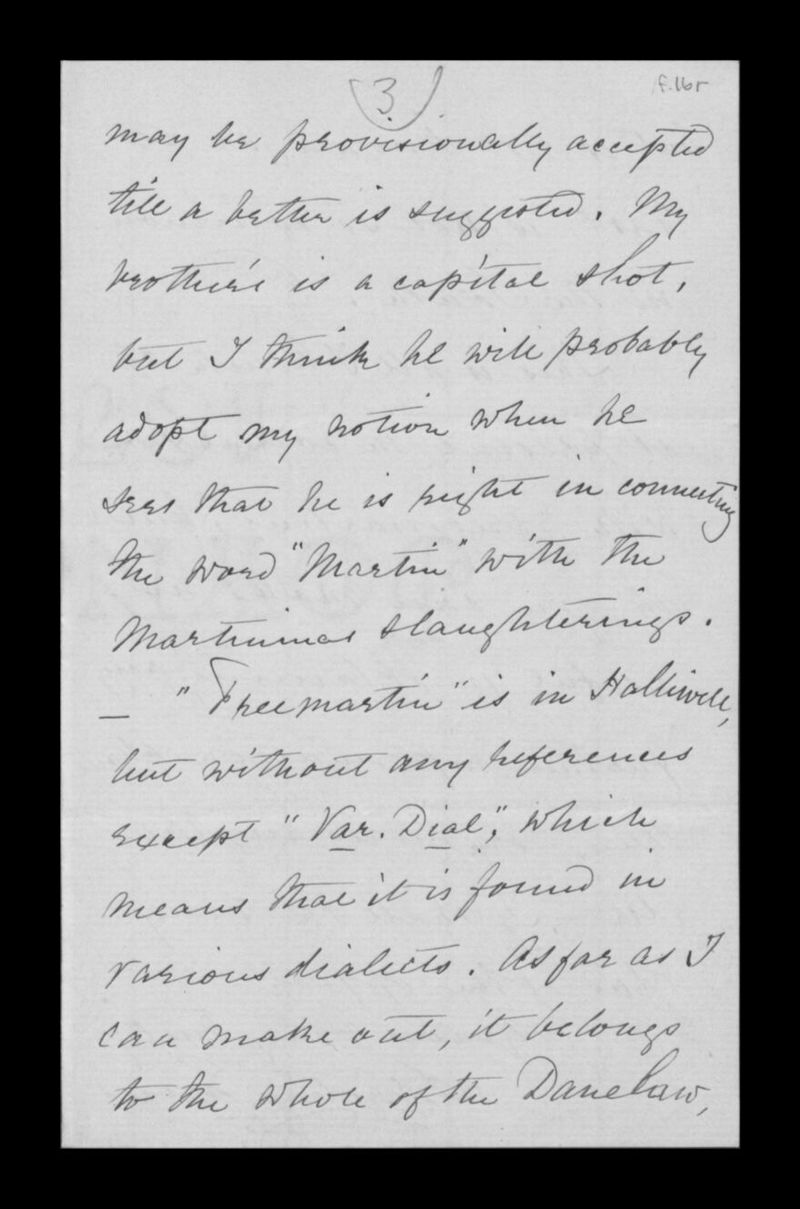 3
f.16r
may be provisionally accepted
till a better is suggested. My
brother's is a capital shot,
but I think he will probably
adopt my notion when he
sees that he is right in connecting
the word "Martin" with the
Martinmas slaughterings.
— "Freemartin" is in Halliwell,
but without any references
except "Var. Dial", which
means that it is found in
various dialects. As far as I
can make out, it belongs
to the whole of the Danelaw,